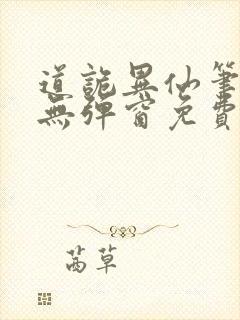 道詭異仙筆
無彈窗免費
茵草